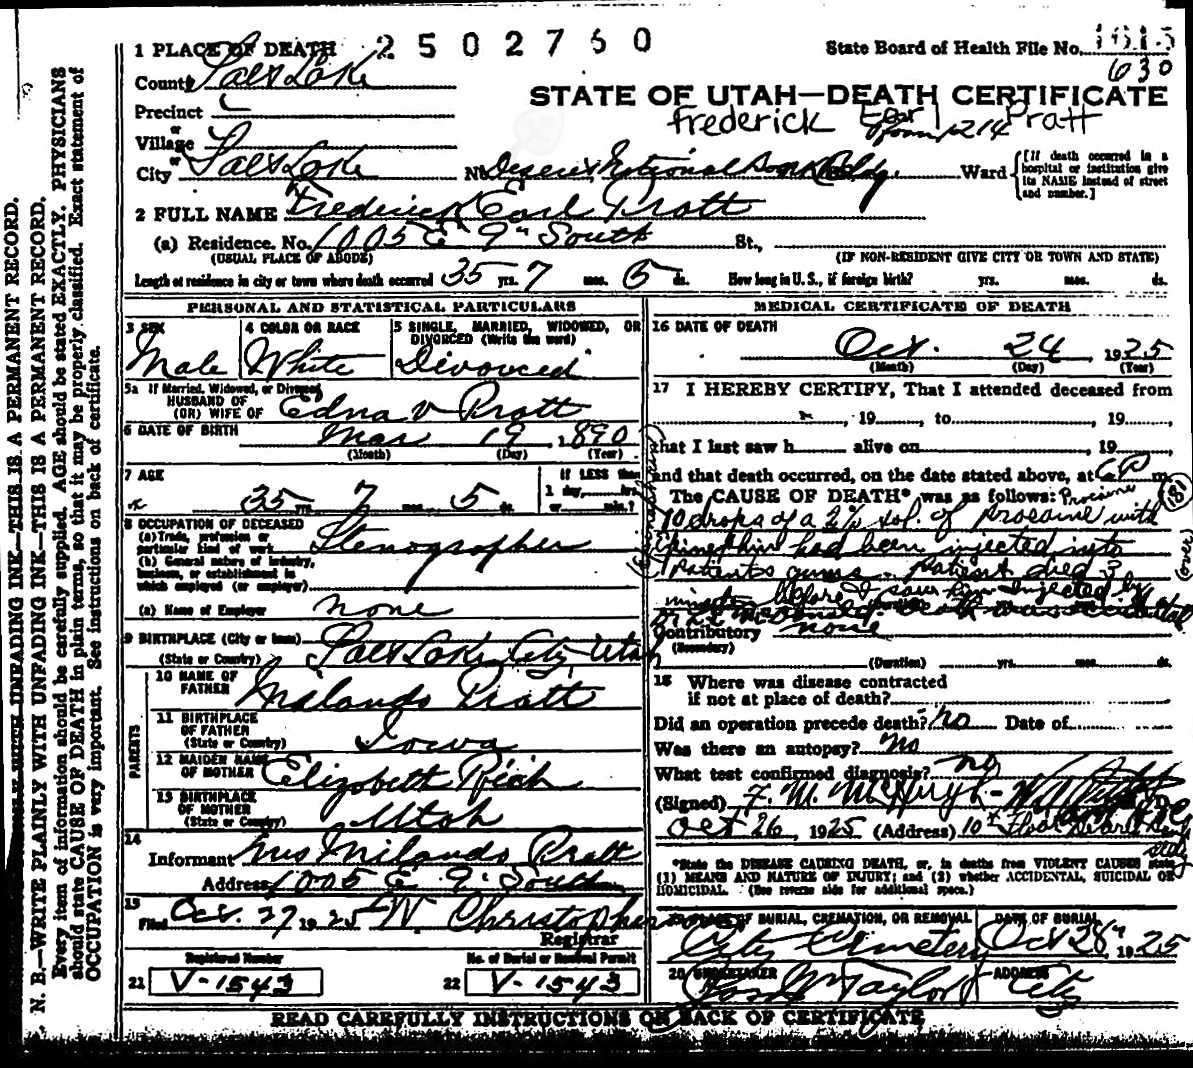 1 PLACE OF DEATH 2502760 State Board of Health File No. 1615
County Salt Lake 630
Precinct
STATE OF UTAH—DEATH CERTIFICATE
Frederick Earl Pratt
or
Village
or
City Salt Lake No. Deseret National Bank Bldg. Room 1214 Ward
[If death occurred in a hospital or institution give its NAME instead of street and number.]
2 FULL NAME Frederick Earl Pratt
(a) Residence. No. 1005 E 9" South St.,
(USUAL PLACE OF ABODE) (IF NON-RESIDENT GIVE CITY OR TOWN AND STATE)
Length of residence in city or town where death occurred 35 yrs. 7 mos. 5 ds. How long in U. S., if foreign birth? yrs. mos. ds.
PERSONAL AND STATISTICAL PARTICULARS
3 SEX Male
4 COLOR OR RACE White
5 SINGLE, MARRIED, WIDOWED, OR DIVORCED (Write the word) Divorced
5a If Married, Widowed, or Divorced
HUSBAND OF
(OR) WIFE OF Edna V Pratt
6 DATE OF BIRTH Mar 19, 1890
(Month) (Day) (Year)
7 AGE 35 yrs. 7 mos. 5 ds.
If LESS than 1 day, hrs. or min.?
8 OCCUPATION OF DECEASED
(a) Trade, profession or particular kind of work Stenographer
(b) General nature of industry, business, or establishment in which employed (or employer)
(c) Name of Employer none
9 BIRTHPLACE (City or town) Salt Lake City, Utah
(State or Country)
PARENTS
10 NAME OF FATHER Milando Pratt
11 BIRTHPLACE OF FATHER (State or Country) Iowa
12 MAIDEN NAME OF MOTHER Elizabeth Rich
13 BIRTHPLACE OF MOTHER (State or Country) Utah
14
Informant Mrs Milando Pratt
Address 1005 E 9" South
15
Filed Oct. 27 1925 Christopherson
Registrar
Registered Number No. of Burial or Removal Permit
21 V-1543 22 V-1543
MEDICAL CERTIFICATE OF DEATH
16 DATE OF DEATH
Oct. 24, 1925
(Month) (Day) (Year)
17 I HEREBY CERTIFY, That I attended deceased from
, 19 , to , 19 ,
that I last saw h alive on , 19
and that death occurred, on the date stated above, at 6 P m.
The CAUSE OF DEATH* was as follows: Procaine (181)
10 drops of a 2% sol. of procaine with
had been injected into (over)
patients gums. patient died 3
minutes before I saw him Injected by
Dr. death was accidental
Contributory none
(Secondary)
(Duration) yrs. mos. ds.
18 Where was disease contracted
if not at place of death?
Did an operation precede death? No Date of
Was there an autopsy? No
What test confirmed diagnosis? no
(Signed) F. M. McHugh
Oct 26, 1925 (Address) 10th Floor Deseret Bank
Bldg
*State the DISEASE CAUSING DEATH, or, in deaths from VIOLENT CAUSES state (1) MEANS AND NATURE OF INJURY; and (2) whether ACCIDENTAL, SUICIDAL OR HOMICIDAL. (See reverse side for additional space.)
19 PLACE OF BURIAL, CREMATION, OR REMOVAL DATE OF BURIAL
City Cemetery Oct 28" 1925
20 UNDERTAKER ADDRESS
Taylor City
READ CAREFULLY INSTRUCTIONS ON BACK OF CERTIFICATE
N. B.—WRITE PLAINLY WITH UNFADING INK—THIS IS A PERMANENT RECORD.
Every item of information should be carefully supplied. AGE should be stated EXACTLY. PHYSICIANS
should state CAUSE OF DEATH in plain terms, so that it may be properly classified. Exact statement of
OCCUPATION is very important. See instructions on back of certificate.